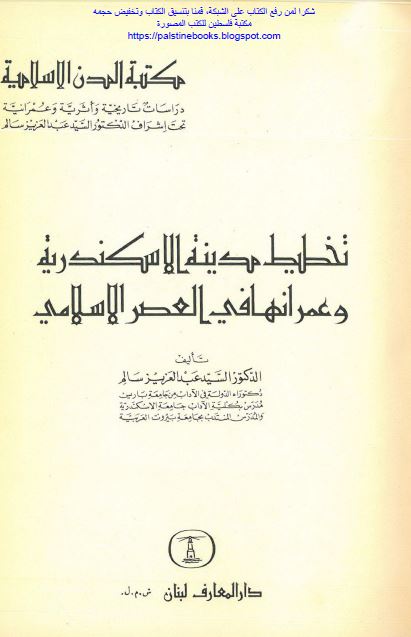 شكرا لمن رفع الكتاب على الشبكة، قمنا بتنسيق الكتاب وتخفيض حجمه
مكتبة فلسطين للكتب المصورة
https://palstinebooks.blogspot.com
مكتبة المدن الإسلامية
دراسات تاريخية وأثرية وعمرانية
تحت إشراف الدكتور السيد عبد العزيز سالم
تخطيط مدينة الاسكندرية
وعمرانها في العصر الاسلامي
تأليف
الدكتور السيد عبد العزيز سالم
دكتوراه الدولة في الآداب من جامعة باريس
مدرس بكلية الآداب جامعة الاسكندرية
والمدرس المنتدب بجامعة بيروت العربية
دار المعارف لبنان ش.م.ل.